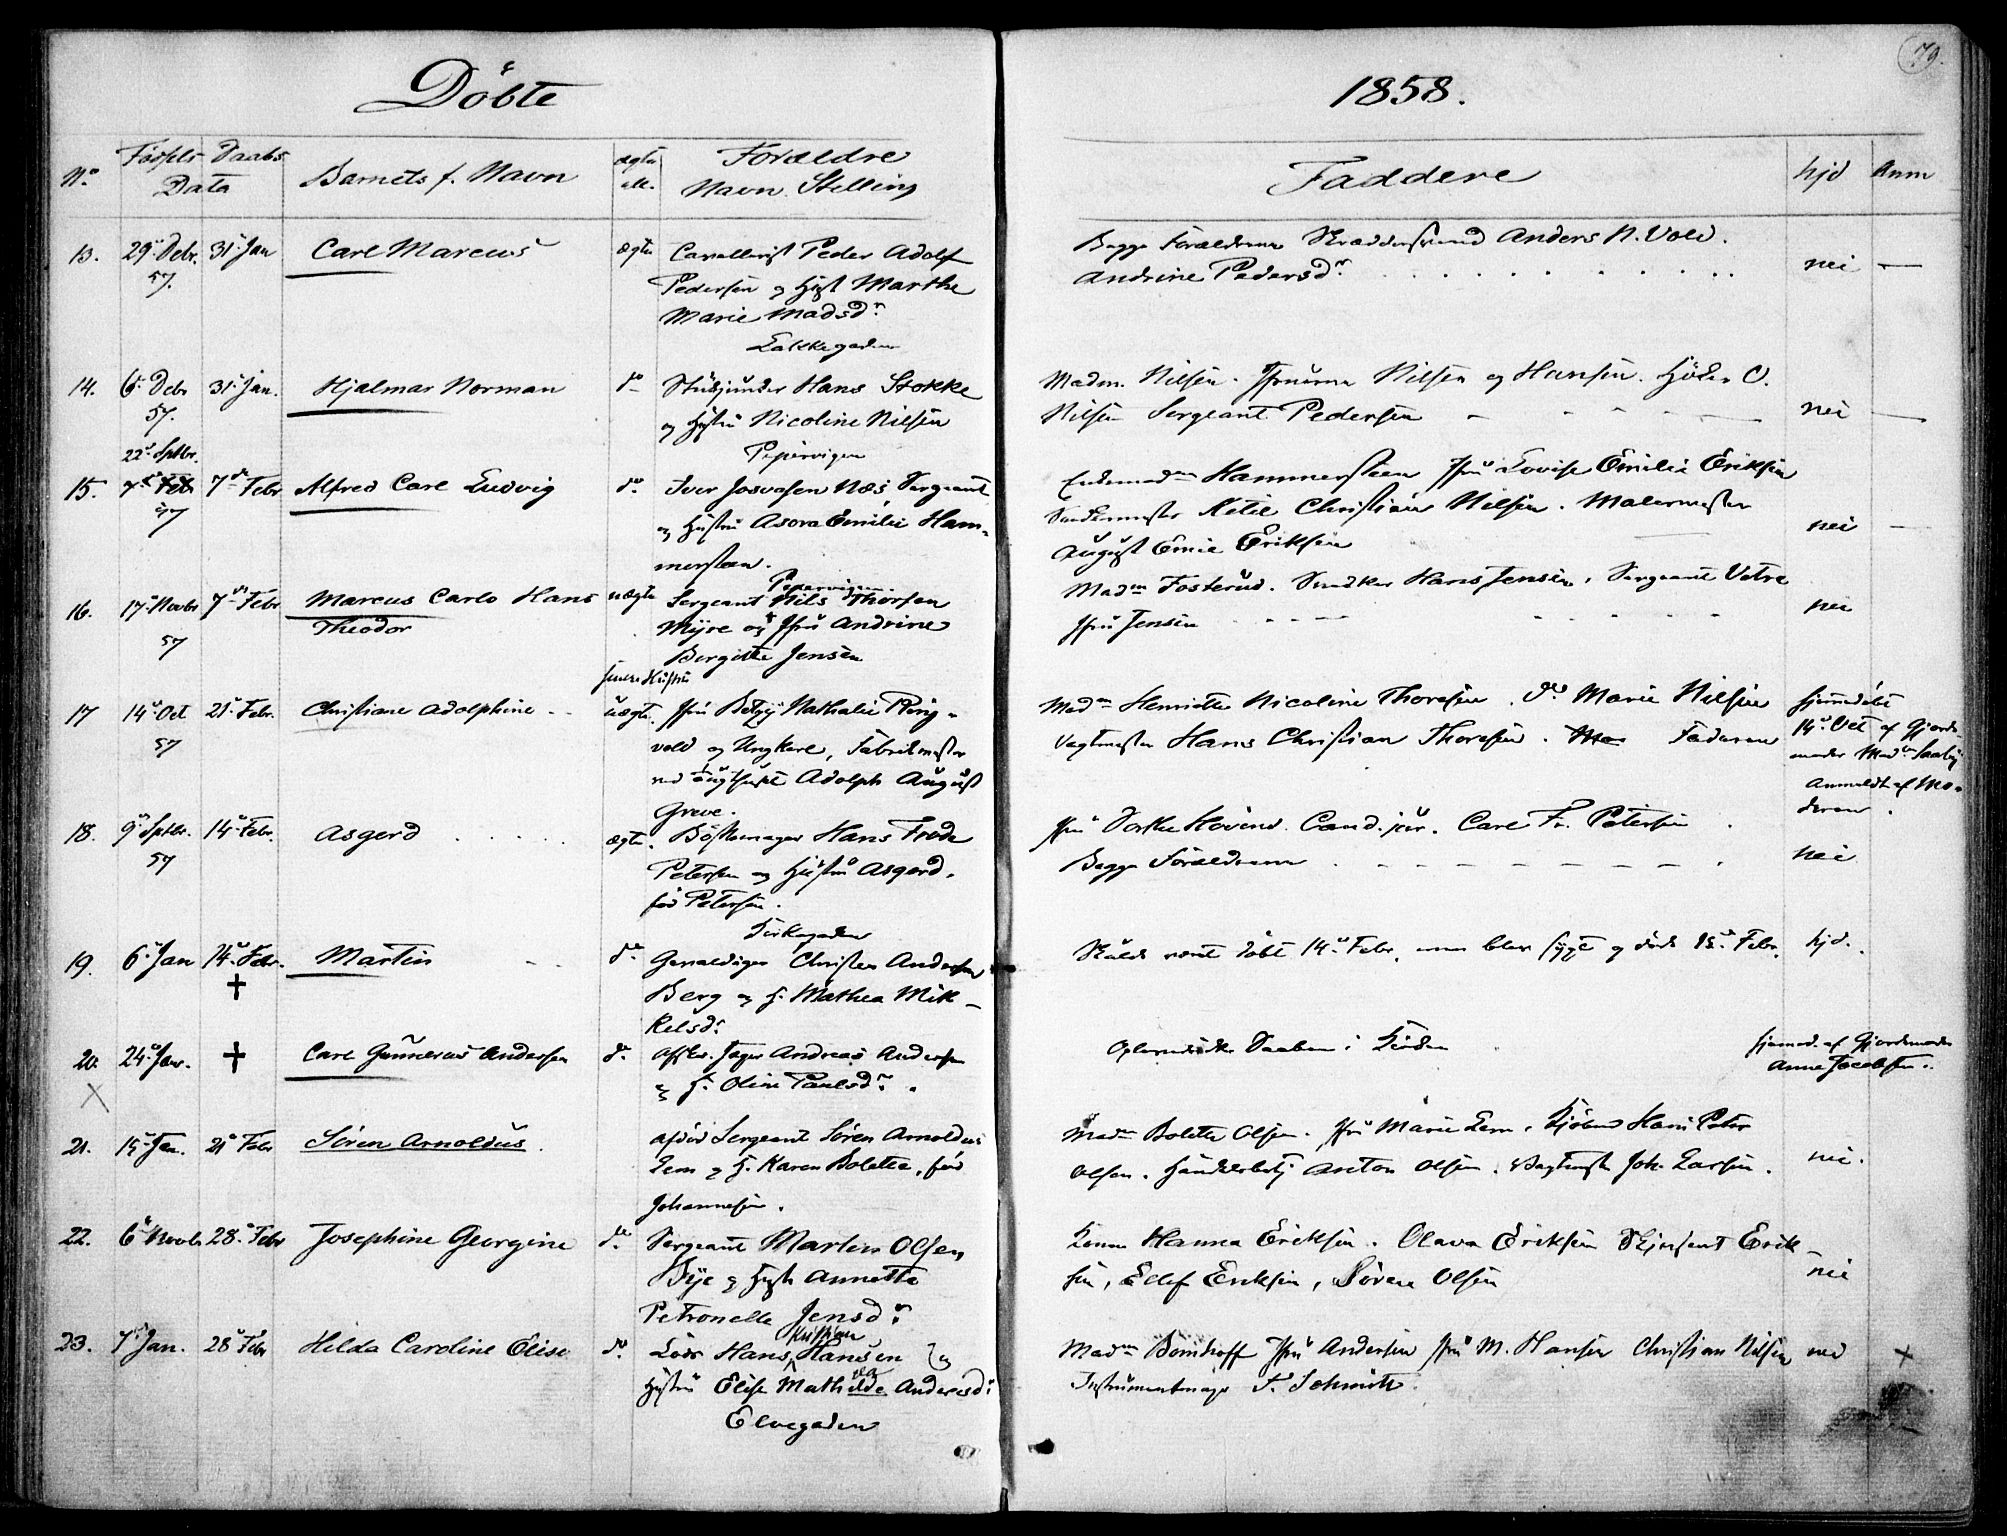 79.
Döbte 1858.
No Fødsels Daabs Data Barnets f. Navn ægte ell. Forældre Navn Stilling Faddere hjd Anm
13. 29 Debr. 31 Jan Carl Marcus ægte Cavallerist Peder Adolf
57. Pedersen og Hust Marthe
Marie Madsdr
Lakkegaden
Begge Forældrene Anders N. Vold.
Andrine Pedersdr nei —
14. 6 Debr 31 Jan. Hjalmar Norman do Hans Stokke
57. og Hustru Nicoline Nilsen
Pipervigen
Madm. Nilsen. Fruerne Nilsen og Hansen. C.
Nilsen Sergeant Pedersen nei —
22 Septbr.
15. 7de Feb 7de Febr Alfred Carl Ludvig do. Iver Josvasen Næs Sergeant
57 og Hustru Asora Emilie Ham-
mersteen.
Pipervigen
Enkemadm Hammersteen Jfru Lovise Emilie Eriksen
Ketil Christian Nilsen. Malermester
August Emil Eriksen nei —
16. 17 Novbr 7de Febr Marcus Carlo Hans uægte Sergeant Nils Thorsen
57 Theodor Myre og Jfru Andrine
Bergitte Jensen
senere Hustru
Madm Fosterud. Snedker Hans Jensen, Sergeant Vetre
Jfru Jensen nei
17 14 Oct 21 Febr. Christiane Adolphine uægte. Jfru Betzy Nathalie Ring-
57 vold og Ungkarl, Fabrikmester
ved Adolph August
Greve.
Madm Henriette Nicoline Thoresen. do Marie Nilsen
Vagtmester Hans Christian Thoresen. Faderen
hjemmedøbt
14 Oct af Gjorde-
moder Madm Saaby
Anmeldt af Mo-
deren.
18. 9 Septbr. 14 Febr. Asgerd ægte. Bøssemager Hans Frode
57 Petersen og Hustru Asgerd,
fød Petersen.
Kirkegaden
Jfru Dorthe Hövend. Cand. jur. Carl Fr. Petersen
Begge Forældrene nei
19. 6 Jan 14 Febr. Martin do Gevaldiger Christen Andersen
✝ Berg og H. Mathea Mik-
kelsdr
Skulde været döbt 14 Febr. men blev syg og döde 13 Febr. hjd.
20. 24 Jan. ✝ Carl Gunnerius Andersen do Jæger Andreas Andersen
X og H. Oline Paulsdr.
Daaben i Kirken
hjemmed. af Gjordemoder
Anne Jacobsen.
21. 15 Jan. 21 Febr Sören Arnoldus. afdød Sergeant Sören Arnoldus
Lem og H. Karen Bolette, fød
Johannesen.
Madm Bolette Olsen. Jfru Marie Lem. Hans Peter
Olsen. Anton Olsen. Vagtmst Joh. Larsen. nei.
22. 6 Novbr 28 Febr Josephine Georgine do Sergeant Martin Olsen
Bye og Hust Annette
Petronelle Jensdr
Hanna Eriksen. Olava Eriksen Erik-
sen, Elef Eriksen, Sören Olsen nei
23. 7 Jan. 28 Febr Hilda Caroline Elise do. Hans Kristian Hansen og
Hustru Elise Mathilde Andersdr
Elvegaden
Madm Bomhoff Jfru Andersen Jfru M. Hansen Christian Nilsen nei X
Instrumentmager F. Schmitt.